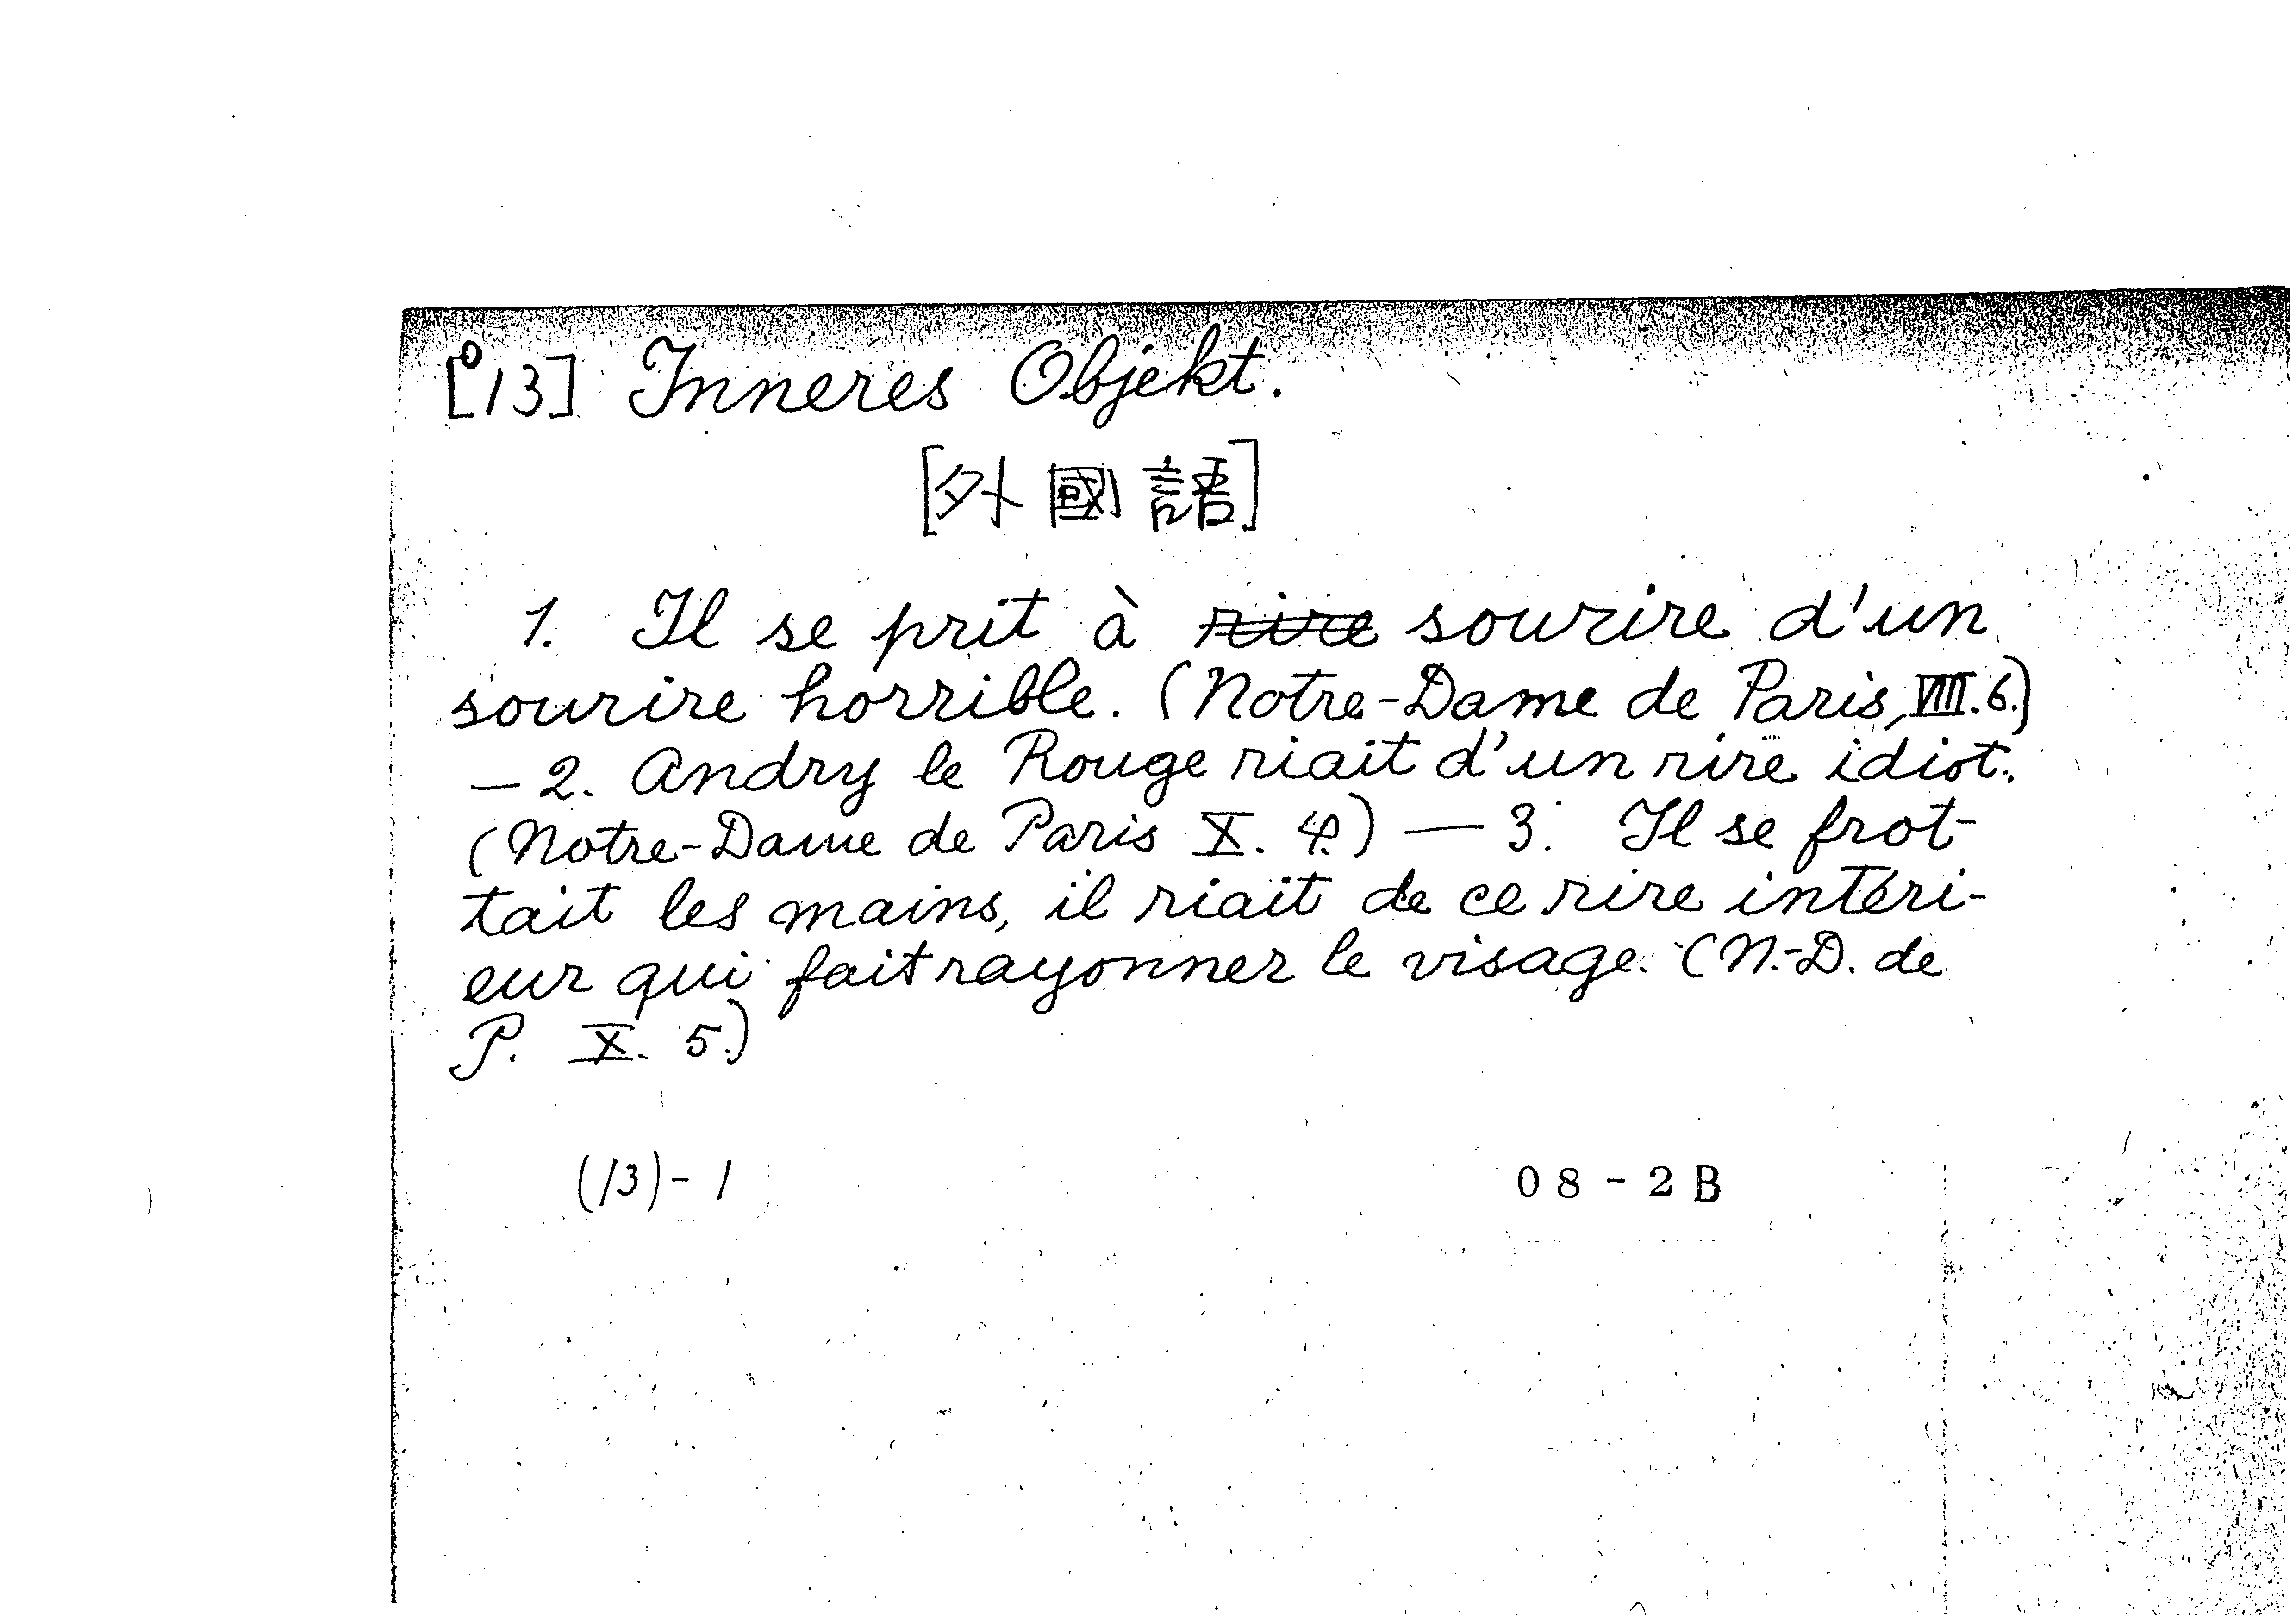 [13] Inneres Objekt.
[外國語]
1. Il se prit à rire sourire d'un
sourire horrible. (Notre-Dame de Paris, VIII. 6.)
— 2. Andry le Rouge riait d'un rire idiot.
(Notre-Dame de Paris X. 4.) — 3. Il se frot-
tait les mains, il riait de ce rire intéri-
eur qui fait rayonner le visage. (N.-D. de
P. X. 5.)
(13) - 1
08 - 2B